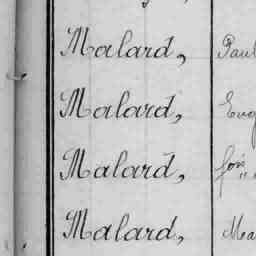 Malard, Paul
Malard, Eug
Malard,
Malard, Ma